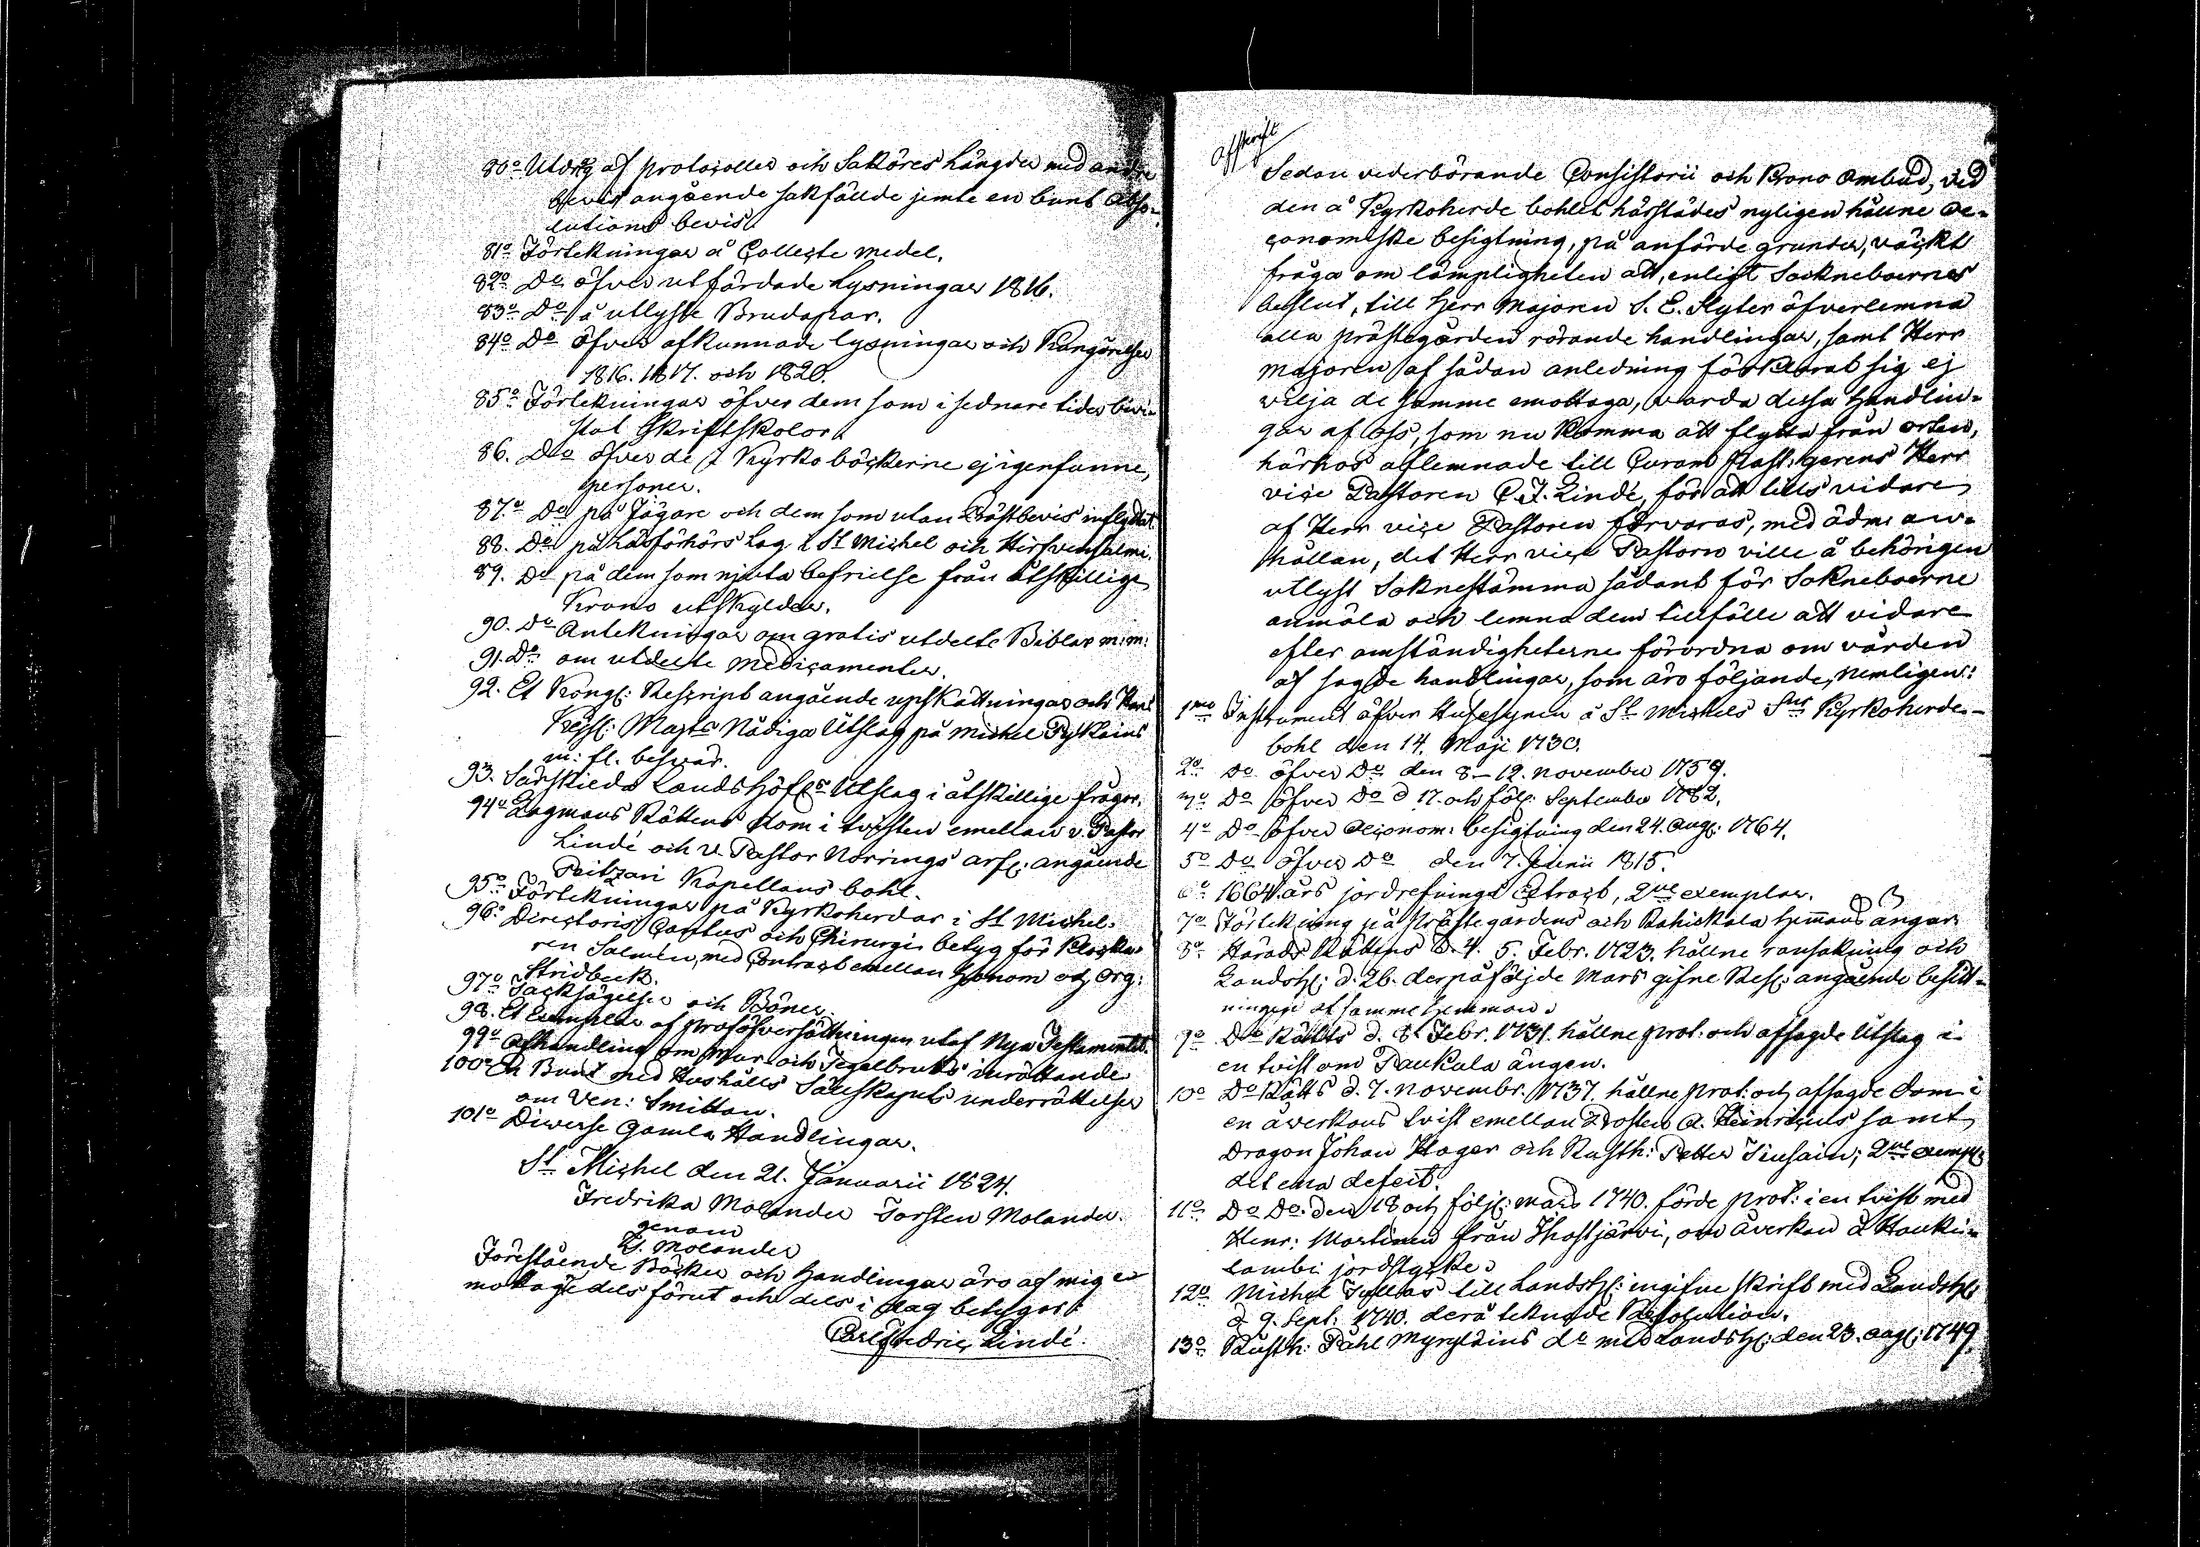 80o Utdrag af protocoller och Saköres Längder med andre
bevis angående sakfällde jemte en bunt Abso-
lutions bevis.
81o Förtekningar å Collecte medel.
82o Do öfver utfärdade Lysningar 1816.
83o Do å utlyste Brudapar.
84o Do öfver afkunnade lysningar och Kungörelser
1816. 1817. och 1820.
85o Förtekningar öfver dem som i sednare tider bevi-
stat Skriftskolor.
86. Do öfver de i Kyrko böckerne ej igenfunne
personer.
87o Do på Jägare och dem som utan Prästbevis inflyttat.
88. Do på läsförhörs Lag i St Michel och Hirfvensalmi.
89. Do på dem som njuta befrielse från åtskillige
Krono utskylder.
90. Do Antekningar om gratis utdelte Biblar m:m:
91. Do om utdelte Medicamenter.
92. Et Kongl: Rescript angående upskattningar och Hans
Kejs: Majts Nådiga Utslag på Michel
m: fl. besvär.
93. Särskieda Landshöfdes Utslag i åtskillige frågor.
94o Lagmans Rättens Dom i tvisten emellan v. Pastor
Lindé och v. Pastor Norrings arf: angående
Kapellans bohl.
95o Förtekningar på Kyrkoherdar i St Michel.
96o Directoris Cantus och Chirurgi betyg för Klocka-
ren Salmén, med Contract emellan honom och Org:
Stridbeck.
97o Tacksägelser och Böner.
98. Et Exemplar af proföfversättningen utaf Nya Testamentet.
99o Afhandling om Mur och Tegelbruks inrättande
100o En Bunt med Hushålls Sällskapets underrättelser
om Ven: Smittan.
101o Diverse Gamla Handlingar.
St Michel den 21. Januarii 1824.
Fredrika Molander Torsten Molander.
genom
T. Molander
Förestående Böcker och Handlingar äro af mig e-
mottagne dels förut och dels i dag betygar:
Carl Fredric Lindé.
Afskrift
Sedan vederbörande Consistorii och Krono Ombud, vid
den å Kyrkoherde bohlet härstädes nyligen hållne Oe-
conomiske besigtning, på anförde grunder, väckt
fråga om lämpligheten att, enligt Sockneboernes
beslut, till Herr Majoren S. E. Slyter öfverlemna
alla prästegården rörande handlingar, samt Herr
Majoren af sådan anledning förklarat sig ej
vilja de samme emottaga, warda dessa handlin-
gar af oss, som nu komma att flytta från orten,
härhos aflemnade till Curam Past: gerens Herr
vice Pastoren C. F. Lindé, för att tills vidare
af Herr vice Pastoren förvaras, med ödm: an-
hållan, det Herr vice Pastorn ville å behörigen
utlyst Soknestämma sådant för Sokneboerne
anmäla och lemna dem tillfälle att vidare
efter omständigheterne förordna om vården
af sagde handlingar, som äro följande, nemligen:
1mo Instrument öfver Husesynen å St Michels Sns Kyrkoherde-
bohl den 14. Maji 1730.
2o Do öfver Do den 8-12. November 1759.
3o Do öfver Do d 17. och följ: September 1782.
4o Do öfver Oeconom: besigtning den 24. Aug: 1764.
5o Do öfver Do den 7. Junii 1815.
6o 1664 års jordrefnings Extract, 2ne exemplar.
7o Förtekning på Prästegårdens och Rahiskala Hemans ängar
8o Härads Rättens d. 4. 5. Febr. 1723. hållne ransakning och
Landsh: d. 26. derpåföljde Mars gifne Res: angående besitt-
ningen af samme hemman.
9o Do Rätts d. 8 Febr. 1731. hållne prot: och afsagde Utslag i
en tvist om Paukula ängen.
10o Do Rätts d. 7. Novembr. 1737. hållne prot: och afsagde Dom i
en åverkans tvist emellan Prosten A. Heinricius samt
Dragon Johan Hager och Rusth: Petter Tiusain; 2ne exempl:
det ena defect.
11o Do Do den 18 och följ: Mars 1740. förde prot: i en tvist med
Henr: Martinen från Ihastjärvi, om åverkan å Hauki-
lambi jordstycke.
12o Michel Tyllas till Landsh: ingifne skrift med Landsh:
d 9. Sept: 1740. derå teknade Resolution.
13o Rusth: Påhl Myryläins do med Landsh: den 23. Aug: 1749.